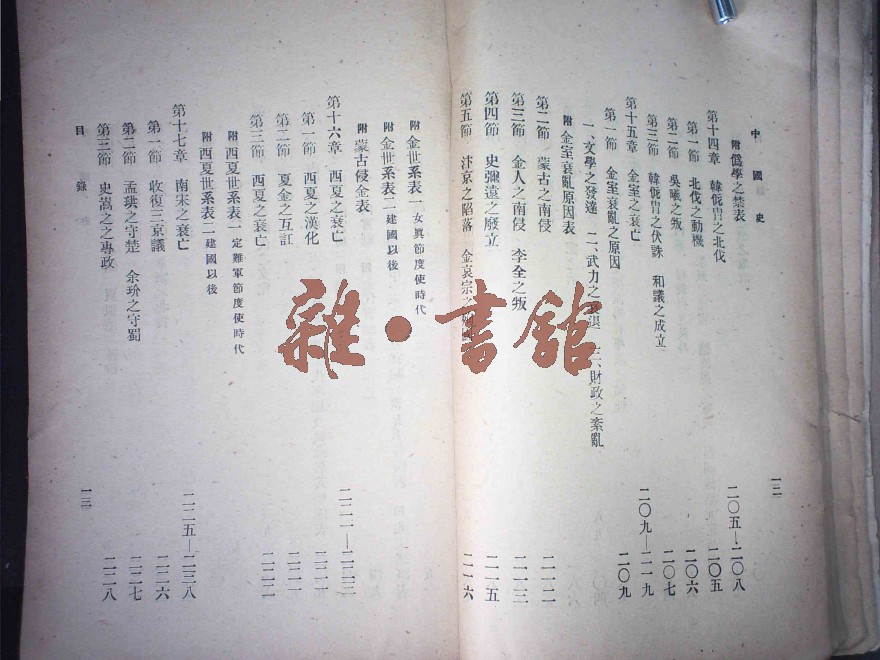 中國史
一二
附 僞學之禁表
第十四章 韓侂胄之北伐 二〇五—二〇八
第一節 北伐之動機 二〇五
第二節 吳曦之叛 二〇六
第三節 韓侂胄之伏誅 和議之成立 二〇七
第十五章 金室之衰亡 二〇九—二一九
第一節 金室衰亂之原因 二〇九
一、文學之發達 二、武力之衰退 三、財政之紊亂
附 金室衰亂原因表
第二節 蒙古之南侵 二一二
第三節 金人之南侵 李全之叛 二一三
第四節 史彌遠之廢立 二一五
第五節 汴京之陷落 金哀宗之 二一六
附 金世系表一 女眞節度使時代
附 金世系表二 建國以後
附 蒙古侵金表
第十六章 西夏之衰亡 二二一—二二三
第一節 西夏之漢化 二二一
第二節 夏金之互訌 二二一
第三節 西夏之衰亡 二二二
附 西夏世系表一 定難軍節度使時代
附 西夏世系表二 建國以後
第十七章 南宋之衰亡 二二五—二三八
第一節 收復三京議 二二六
第二節 孟珙之守楚 余玠之守蜀 二二七
第三節 史嵩之之專政 二二八
目錄
一三
雜·書館